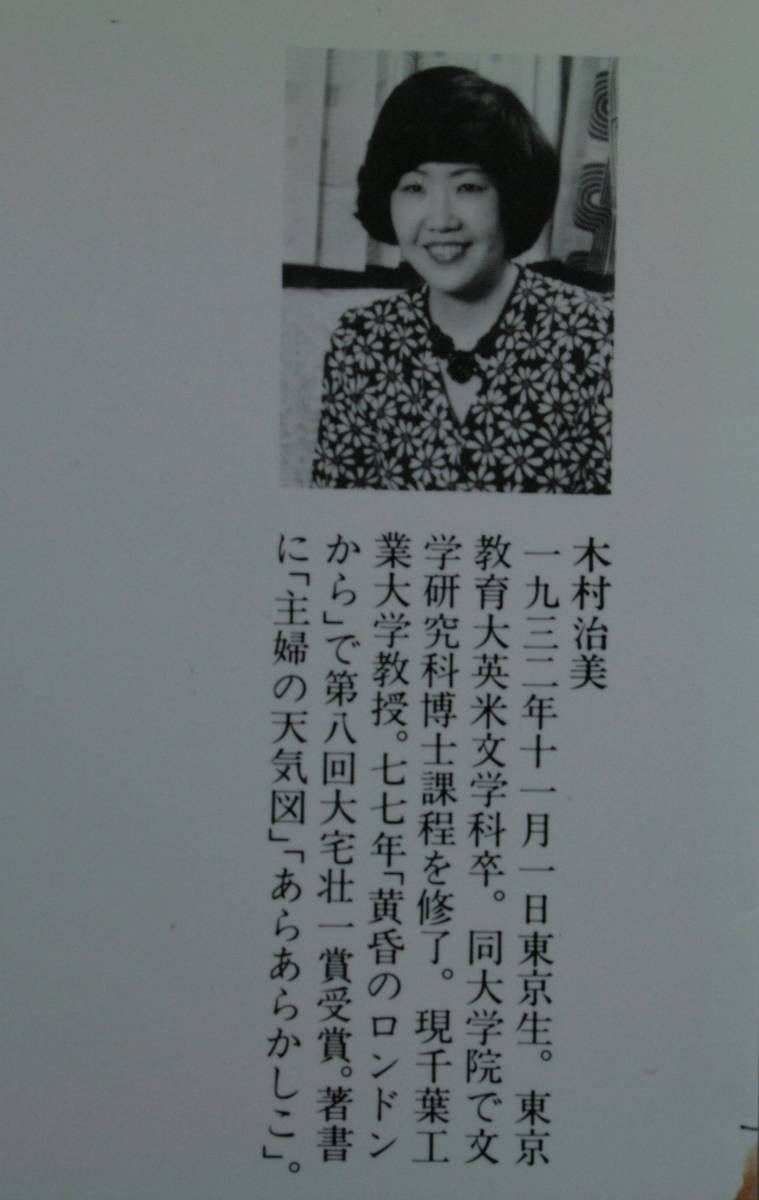 木村治美
一九三二年十一月一日東京生。東京
教育大英米文学科卒。同大学院で文
学研究科博士課程を修了。現千葉工
業大学教授。七七年「黄昏のロンドン
から」で第八回大宅壮一賞受賞。著書
に「主婦の天気図」「あらあらかしこ」。